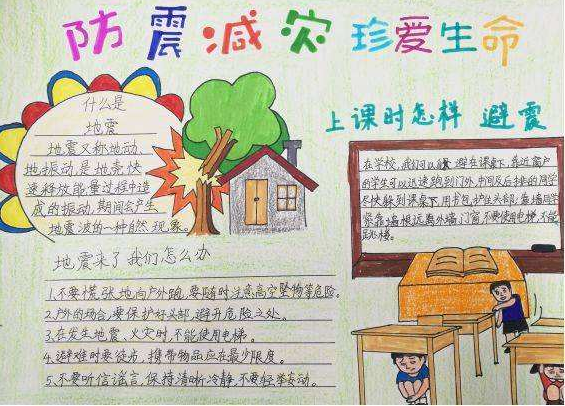 防震减灾 珍爱生命
什么是
地震
地震又称地动、
地振动,是地壳快
速释放能量过程中造
成的振动,期间会产生
地震波的一种自然现象。
上课时怎样 避震
在学校,我们可以 避在课桌下,靠近窗户
的学生可以迅速跑到门外,中间及后排的同学
尽快躲到课桌下,用书包护住头部;靠墙同学
紧靠墙根,远离外墙、门窗,不要使用电梯,不能
跳楼。
地震来了我们怎么办
1.不要慌张地向户外跑,要随时注意高空坠物等危险。
2.户外的场合,要保护好头部,避开危险之处。
3.在发生地震、火灾时,不能使用电梯。
4.避难时要徒步,携带物品应在最少限度。
5.不要听信谣言,保持清晰冷静,不要轻举妄动。